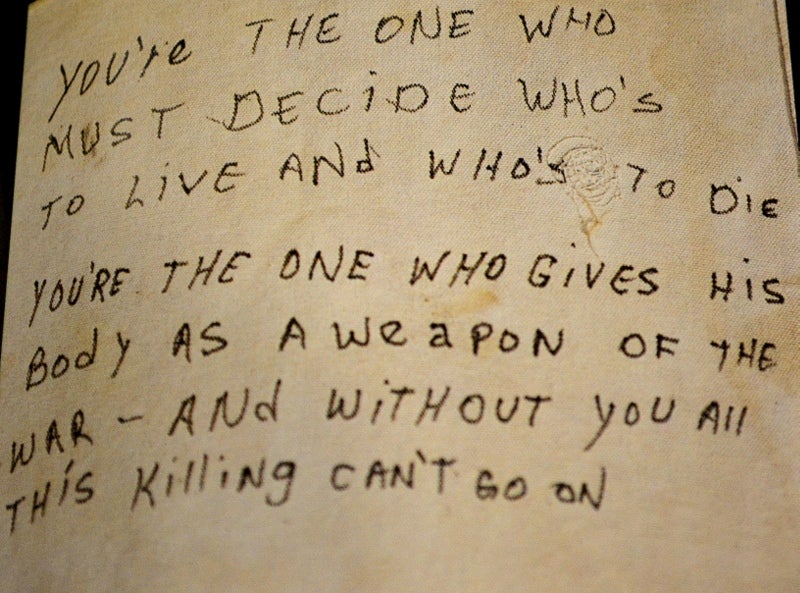 YOU're THE ONE WHO
MUST DECiDE WHO's
TO LiVE ANd WHO's TO DiE
YOU'RE THE ONE WHO GiVES HiS
Body AS A WeaPON OF THE
WAR - ANd WiTHOUT YOU All
THiS Killing CAN'T GO ON